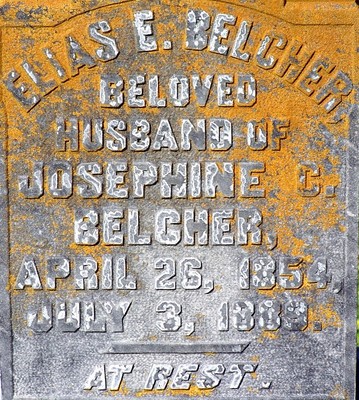 ELIAS E. BELCHER,
BELOVED
HUSBAND OF
JOSEPHINE C.
BELCHER,
APRIL 26, 1854,
JULY 3,
AT REST.